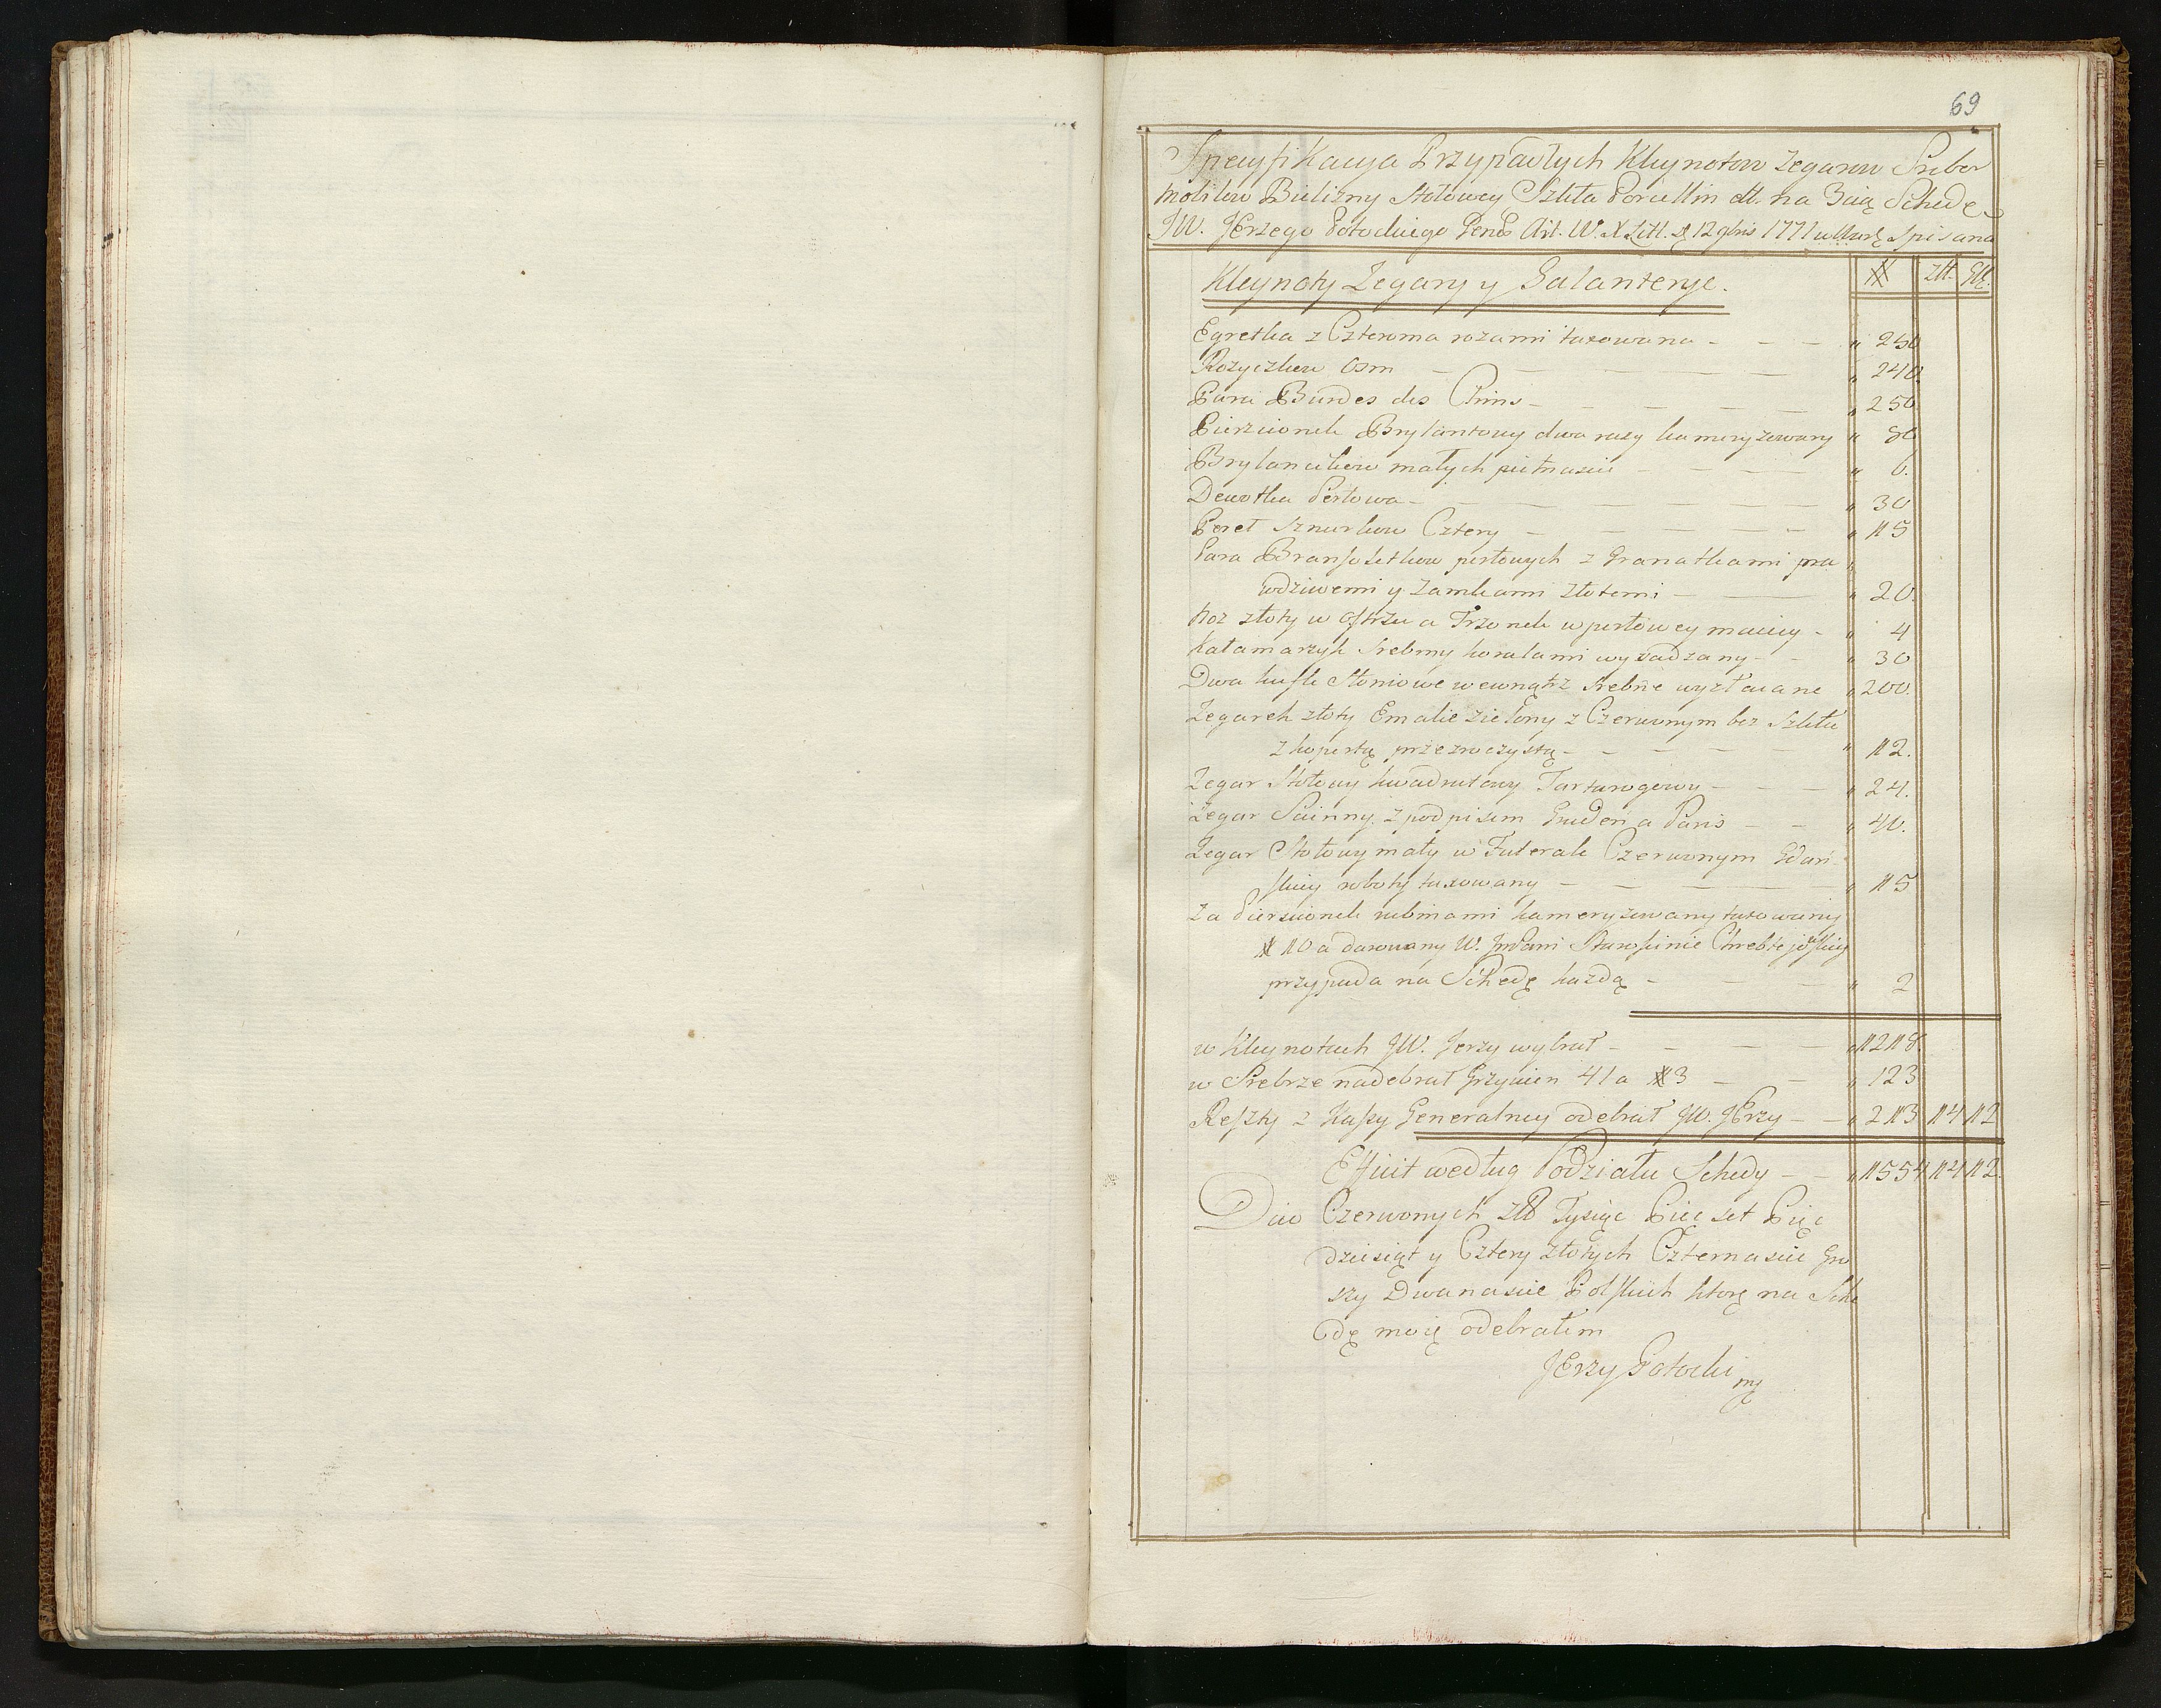 69
Specyfikacya Przypadłych Kleynotow Zegarow Sreber
Mobilow Bielizny Stołowey Szkła Porcellin &c. na 3cią Schedę
JW. Jerzego Potockiego Gene Art. W. X Litt. d. 12 9bris 1771 Spisana
Kleynoty Zegary y Galanterye. # Złł. Gr.
Egretka z Czteroma rozami taxowana - - - " 250
Rozyczkow Osm - - - " 240.
Para Burdes des Chins - - - " 250
Pierscionek Brylantowy dwa razy kameryzowany " 80
Brylancikow małych pietnascie - - - " 6.
Dewotka Perłowa - - - " 30
Pereł sznurkow Cztery - - - " 15
Para Bransoletkow perłowych z Granatkami pra "
wdziwemi y Zamkami Złotemi - - " 20.
Noz złoty w Ostrzu a Trzonek w perłowey macicy - " 4
Kałamarzyk Srebrny koralami wysadzany - - " 30
Dwa kufle Słoniowe wewnątrz srebne wyzłacane " 200.
Zegarek złoty Emalie zielony z Czerwonym bez Szkła
z kopertą przezroczystą - - - " 12.
Zegar Stołowy kwadratowy Tarturogowy - - - " 24.
Zegar Scinny z podpisem Gudeń a Paris - - " 40.
Zegar Stołowy mały w Futerale Czerwonym Gdań
skiey roboty taxowany - - - " 15
Za Pierscionek rubinami kameryzowany taxowany
# 10 a darowany W. JmPani Starościnie Chrebtejowskiey
przypada na Schedę kazdą - - - " 2
w Kleynotach JW. Jerzy wybrał - - - " 1218.
w Srebrze nadebrał Grzywien 41 a # 3 - - " 123
Reszty z Kassy Generalney odebrał JW. JErzy - - " 213 14 12
Efficit według Podziału Schedy - - " 1554 14 12.
Dico Czerwonych Złł Tysiąc Pięc set Pięc
dziesiąt y Cztery złotych Czternascie Gro
szy Dwanascie Polskich ktorę na Sche
dę moię odebrałem
JErzy Potocki mp